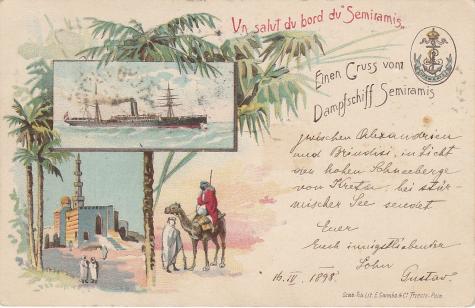 Un salut du bord du "Semiramis"
Einen Gruss vom
Dampfschiff Semiramis
zwischen Alexandrien
und Brindisi, in Sicht
der hohen Schneeberge
von Kreta, bei stür-
mischer See sendet
Euer
Euch innigstliebender
Sohn
Gustav.
16. IV. 1898.